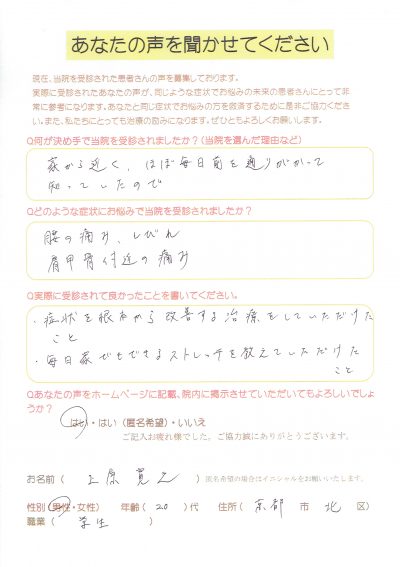 あなたの声を聞かせてください
現在、当院を受診された患者さんの声を募集しております。
実際に受診されたあなたの声が、同じような症状でお悩みの未来の患者さんにとって非
常に参考になります。あなたと同じ症状でお悩みの方を救済するために是非ご協力くださ
い。また、私たちにとっても治療の励みになります。ぜひともよろしくお願いします。
Q何が決め手で当院を受診されましたか？(当院を選んだ理由など)
家から近く、ほぼ毎日前を通りがかって
知っていたので
Qどのような症状にお悩みで当院を受診されましたか？
腰の痛み、しびれ
肩甲骨付近の痛み
Q実際に受診されて良かったことを書いてください。
・症状を根本から改善する治療をしていただけた
こと
・毎日家でもできるストレッチを教えていただけた
こと
Qあなたの声をホームページに記載、院内に掲示させていただいてもよろしいでしょ
うか？
はい・はい（匿名希望）・いいえ
ご記入お疲れ様でした。ご協力誠にありがとうございます。
お名前（ 上原寛之 ）匿名希望の場合はイニシャルをお願いいたします。
性別（男性・女性） 年齢（ 20 ）代 住所（ 京都 市 北 区）
職業（ 学生 ）